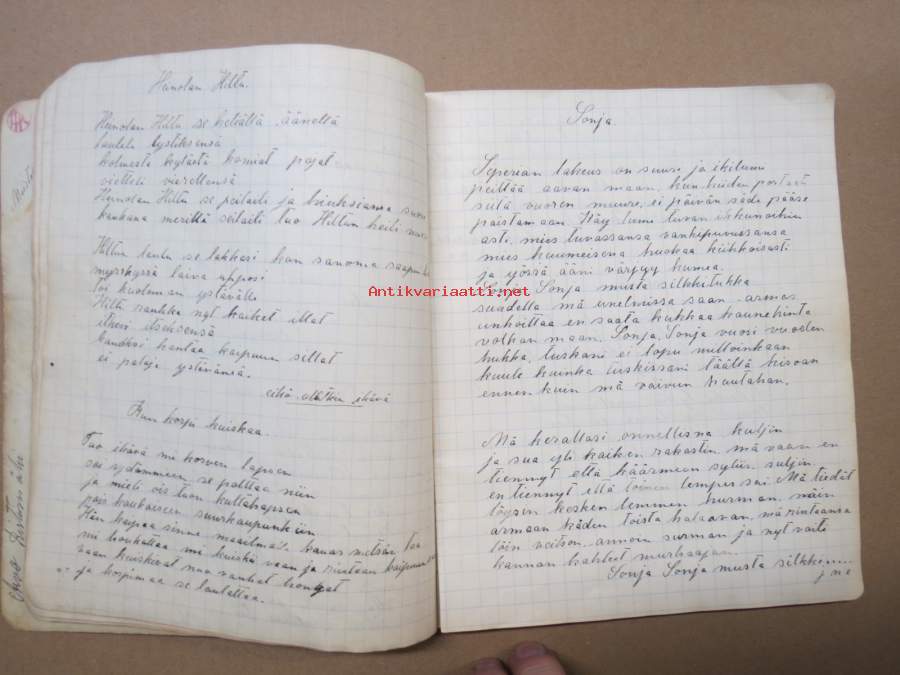 Heinolan Hiltu.
Heinolan Hiltu se heleällä äänellä
lauleli lystiksensä
kolmesta kylästä komiat pojat
vietteli vierellensä
Heinolan Hiltu se piilaili ja
kaukana merillä seilaili tuo Hiltun heili
Hiltun laulu se lakkasi kun sanoma
myrskyssä laiva upposi
toi kuoleman ystävälle
Hiltu rannka nyt kaiket illat
itkeä itseksensä
kaipuun sillat
ei palaja ystävänsä.
eikä
Kun korpi kuiskaa.
Tuo ikävä mi korven lapsen
soi sydämmeen se polttaa niin
ja mieli ois tuon kultahapsen
pois kaukaiseen suurkaupunkiin
Hän kaipaa sinne maailmalle
mi houkuttaa mi kuiskii vaan ja rintaan kaipuun
vaan kuiskevat nuo vanhat hongat
ja korpimaa se lauluttaa.
Sonja.
Siperian lakeus on suuri ja ikilumi
peittää aavan maan, kun hiiden portexta
siitä vuoren muuri, ei päivän säde pääse
paistamaan. Käy lumi tuvan ikkunoihin
asti, mies tuvassansa vankipuvussansa
mies kuumeisena huokaa kiihkoisasti
ja yössä ääni värjyy kumea.
Sonja Sonja musta silkkitukka
suudella mä unelmissa saan armas
unhoittaa en saata kukkaa kaunehinta
volkan maan. Sonja, Sonja vuosi vuoden
hukka, tuskani ei lopu milloinkaan
kuule kuinka tuskissani täältä kiroan
ennen kuin mä vaivun hautahan.
Mä kerallasi onnellisna kuljin
ja sua yli kaiken rakastin mä vaan en
tiennyt että käärmeen syliin suljin
en tiennyt että toinen lempes sai Mä tiedät
löysin kesken lemmen hurman, näin
armaan käden toista halaavan, mä rintaansa
löin veitsen annoin surman ja nyt
kannan kahleet murhaajan.
Sonja Sonja musta silkki....
j n e
Antikvariaatti.net